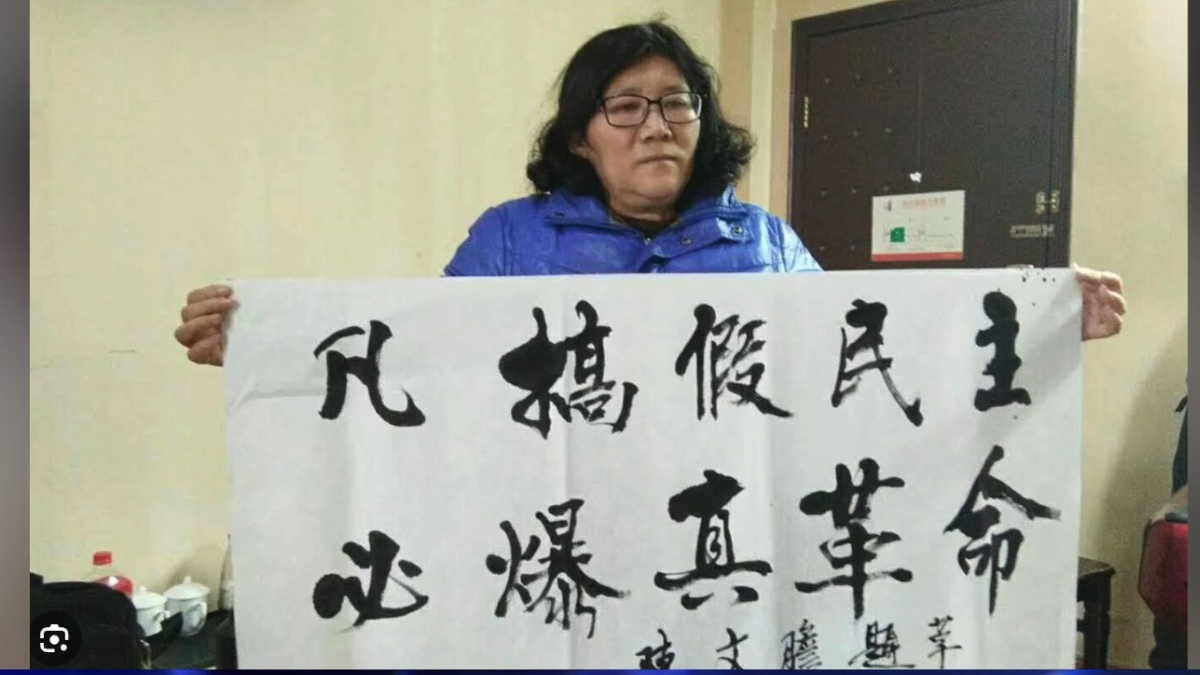 凡搞假民主
必爆真革命
陈文瞻题